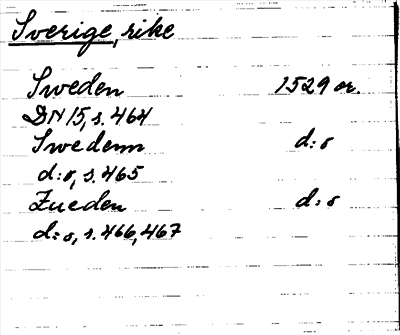 Sverige, rike
Sweden 1529 or.
DN 15, s. 464
Swedenn d:o
d:o, s. 465
Zueden d:o
d:o, s. 466, 467